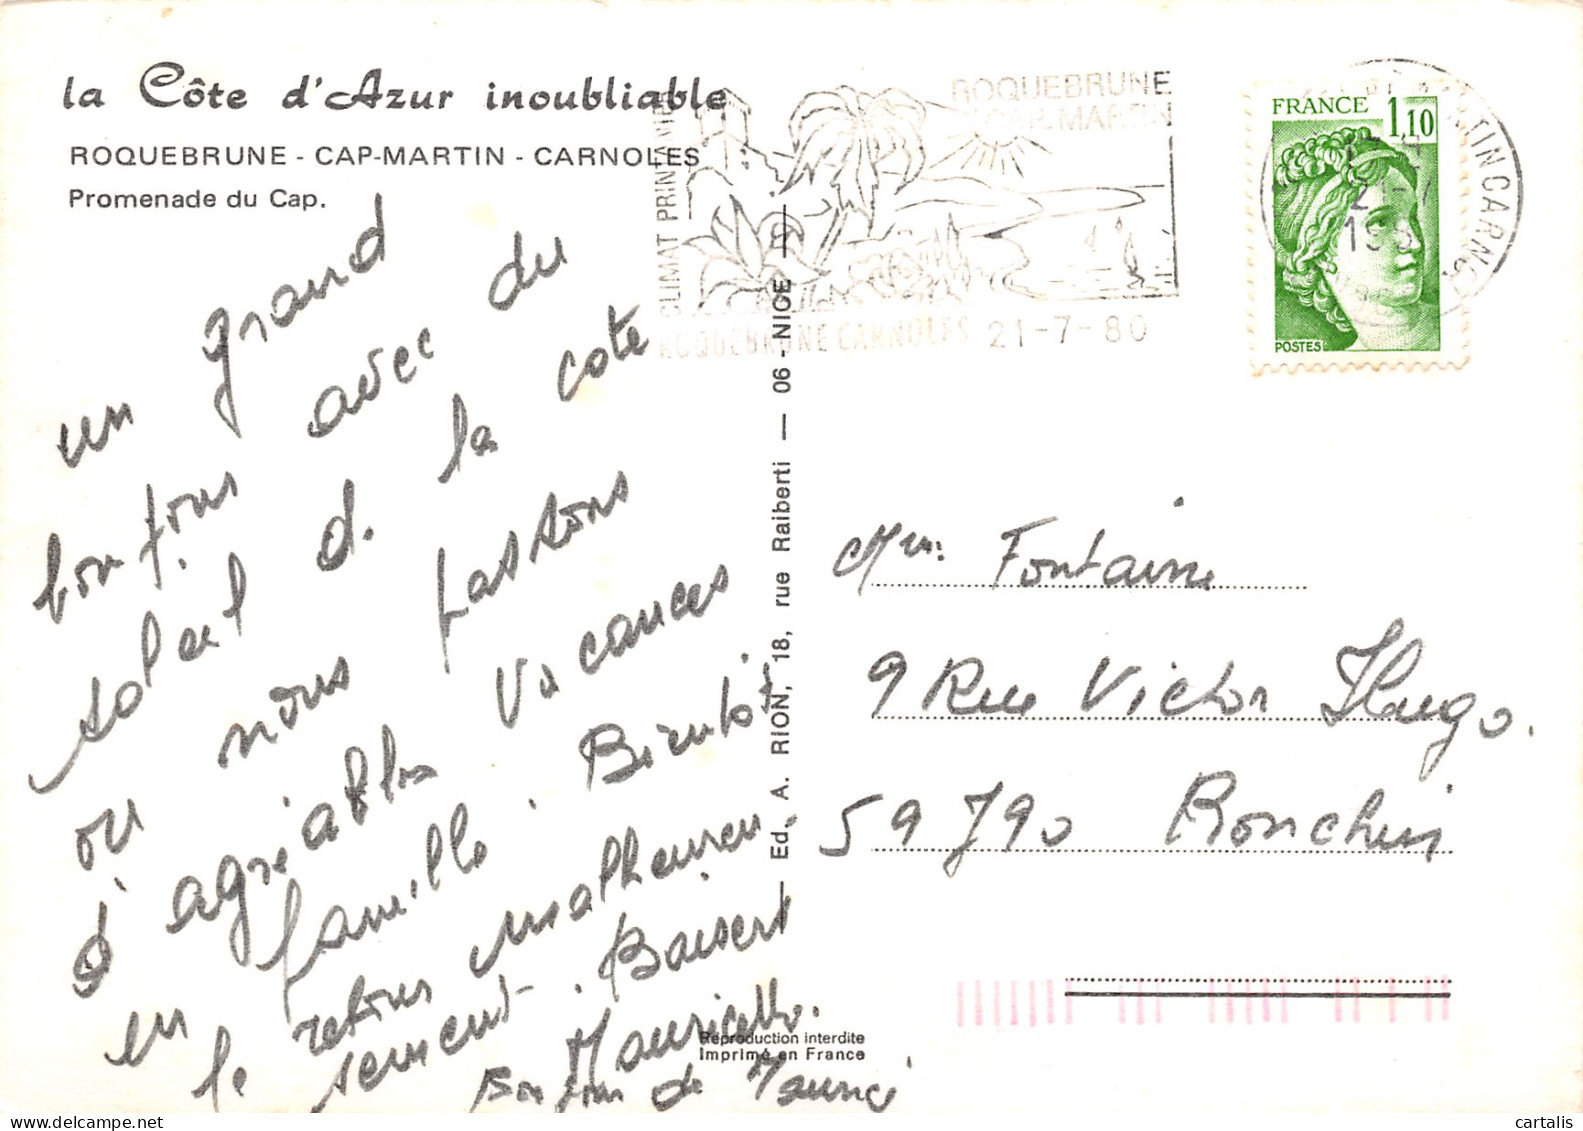 la Côte d'Azur inoubliable
ROQUEBRUNE - CAP-MARTIN - CARNOLES
Promenade du Cap.
un grand
bonjour avec du
soleil de la cote
ou nous passons
d'agréables vacances
en famille. Bientôt
le retour malheureu-
sement. Baisers
Mauricette.
Bonjour de Maurice
Ed. A. RION, 18, rue Raiberti — 06 - NICE —
Reproduction interdite
Imprimé en France
CLIMAT PRINTANIER
ROQUEBRUNE
CAP-MARTIN
ROQUEBRUNE CARNOLES 21-7-80
FRANCE 1,10
POSTES
Mme Fontaine
9 Rue Victor Hugo.
59790 Ronchin
cartalis